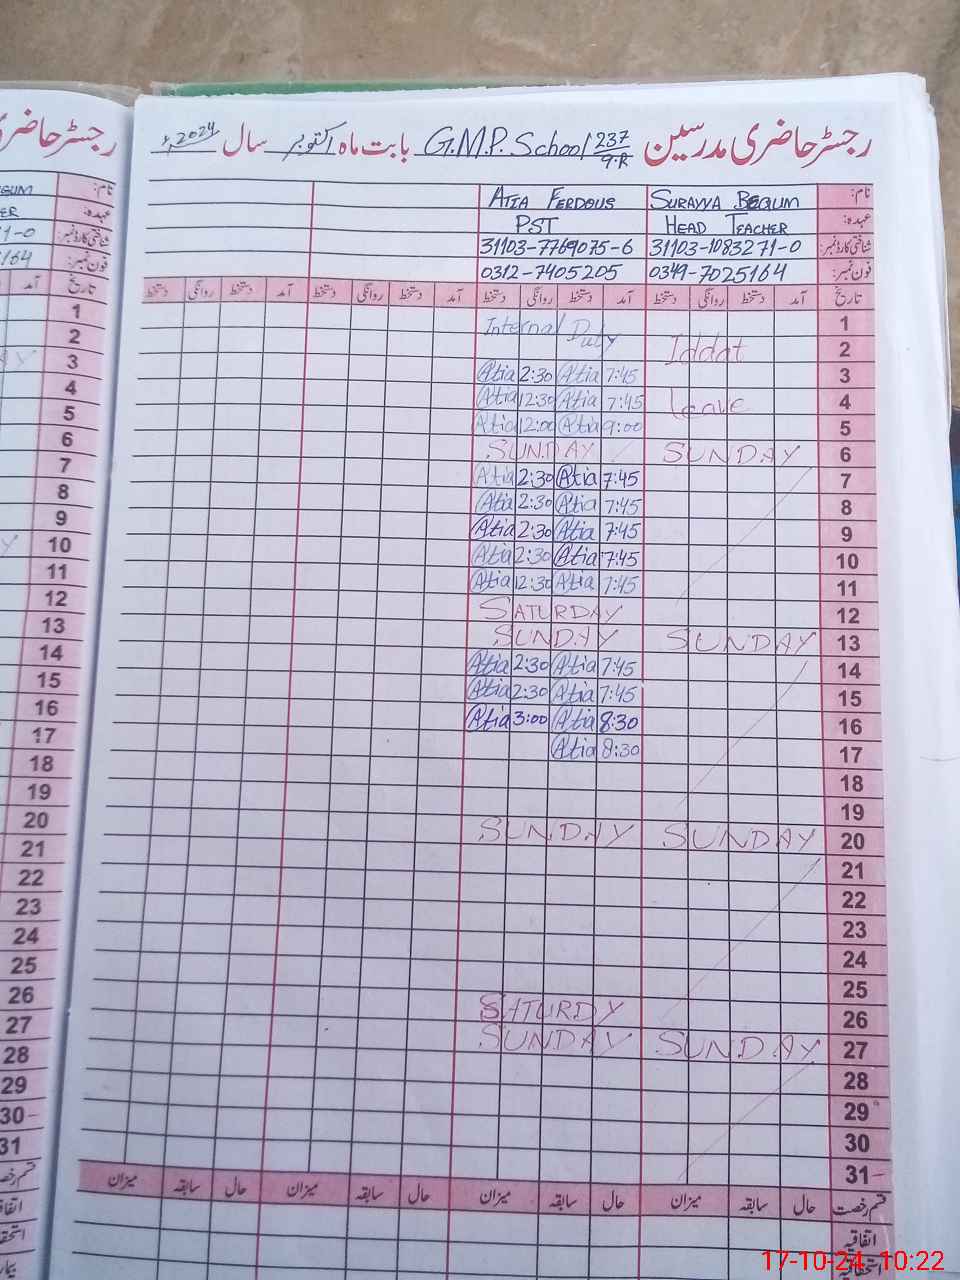 رجسٹر حاضری مدرسین G.M.P. School 237/9-R بابت ماہ اکتوبر سال 2024ء
نام: SURAYYA BEGUM ATIA FERDOUS
عہدہ: HEAD TEACHER PST
شناختی کارڈ نمبر: 31103-1083271-0 31103-7769075-6
فون نمبر: 0349-7025164 0312-7405205
تاریخ آمد دستخط روانگی دستخط آمد دستخط روانگی دستخط آمد دستخط روانگی دستخط آمد دستخط روانگی دستخط
1 Internal Duty
2 Iddat
3 7:45 Atia 2:30 Atia
4 leave 7:45 Atia 12:30 Atia
5 9:00 Atia 12:00 Atia
6 SUNDAY SUNDAY
7 7:45 Atia 2:30 Atia
8 7:45 Atia 2:30 Atia
9 7:45 Atia 2:30 Atia
10 7:45 Atia 2:30 Atia
11 7:45 Atia 12:30 Atia
12 SATURDAY
13 SUNDAY SUNDAY
14 7:45 Atia 2:30 Atia
15 7:45 Atia 2:30 Atia
16 8:30 Atia 3:00 Atia
17 8:30 Atia
18
19
20 SUNDAY SUNDAY
21
22
23
24
25
26 SATURDY
27 SUNDAY SUNDAY
28
29
30
31
قسم رخصت حال سابقہ میزان حال سابقہ میزان حال سابقہ میزان حال سابقہ میزان
اتفاقیہ
استحقاقیہ
رجسٹر حاضری
نام:
عہدہ:
شناختی کارڈ نمبر: 1-0
فون نمبر: 164
تاریخ آمد
1
2
3
4
5
6
7
8
9
10
11
12
13
14
15
16
17
18
19
20
21
22
23
24
25
26
27
28
29
30
31
17-10-24 10:22